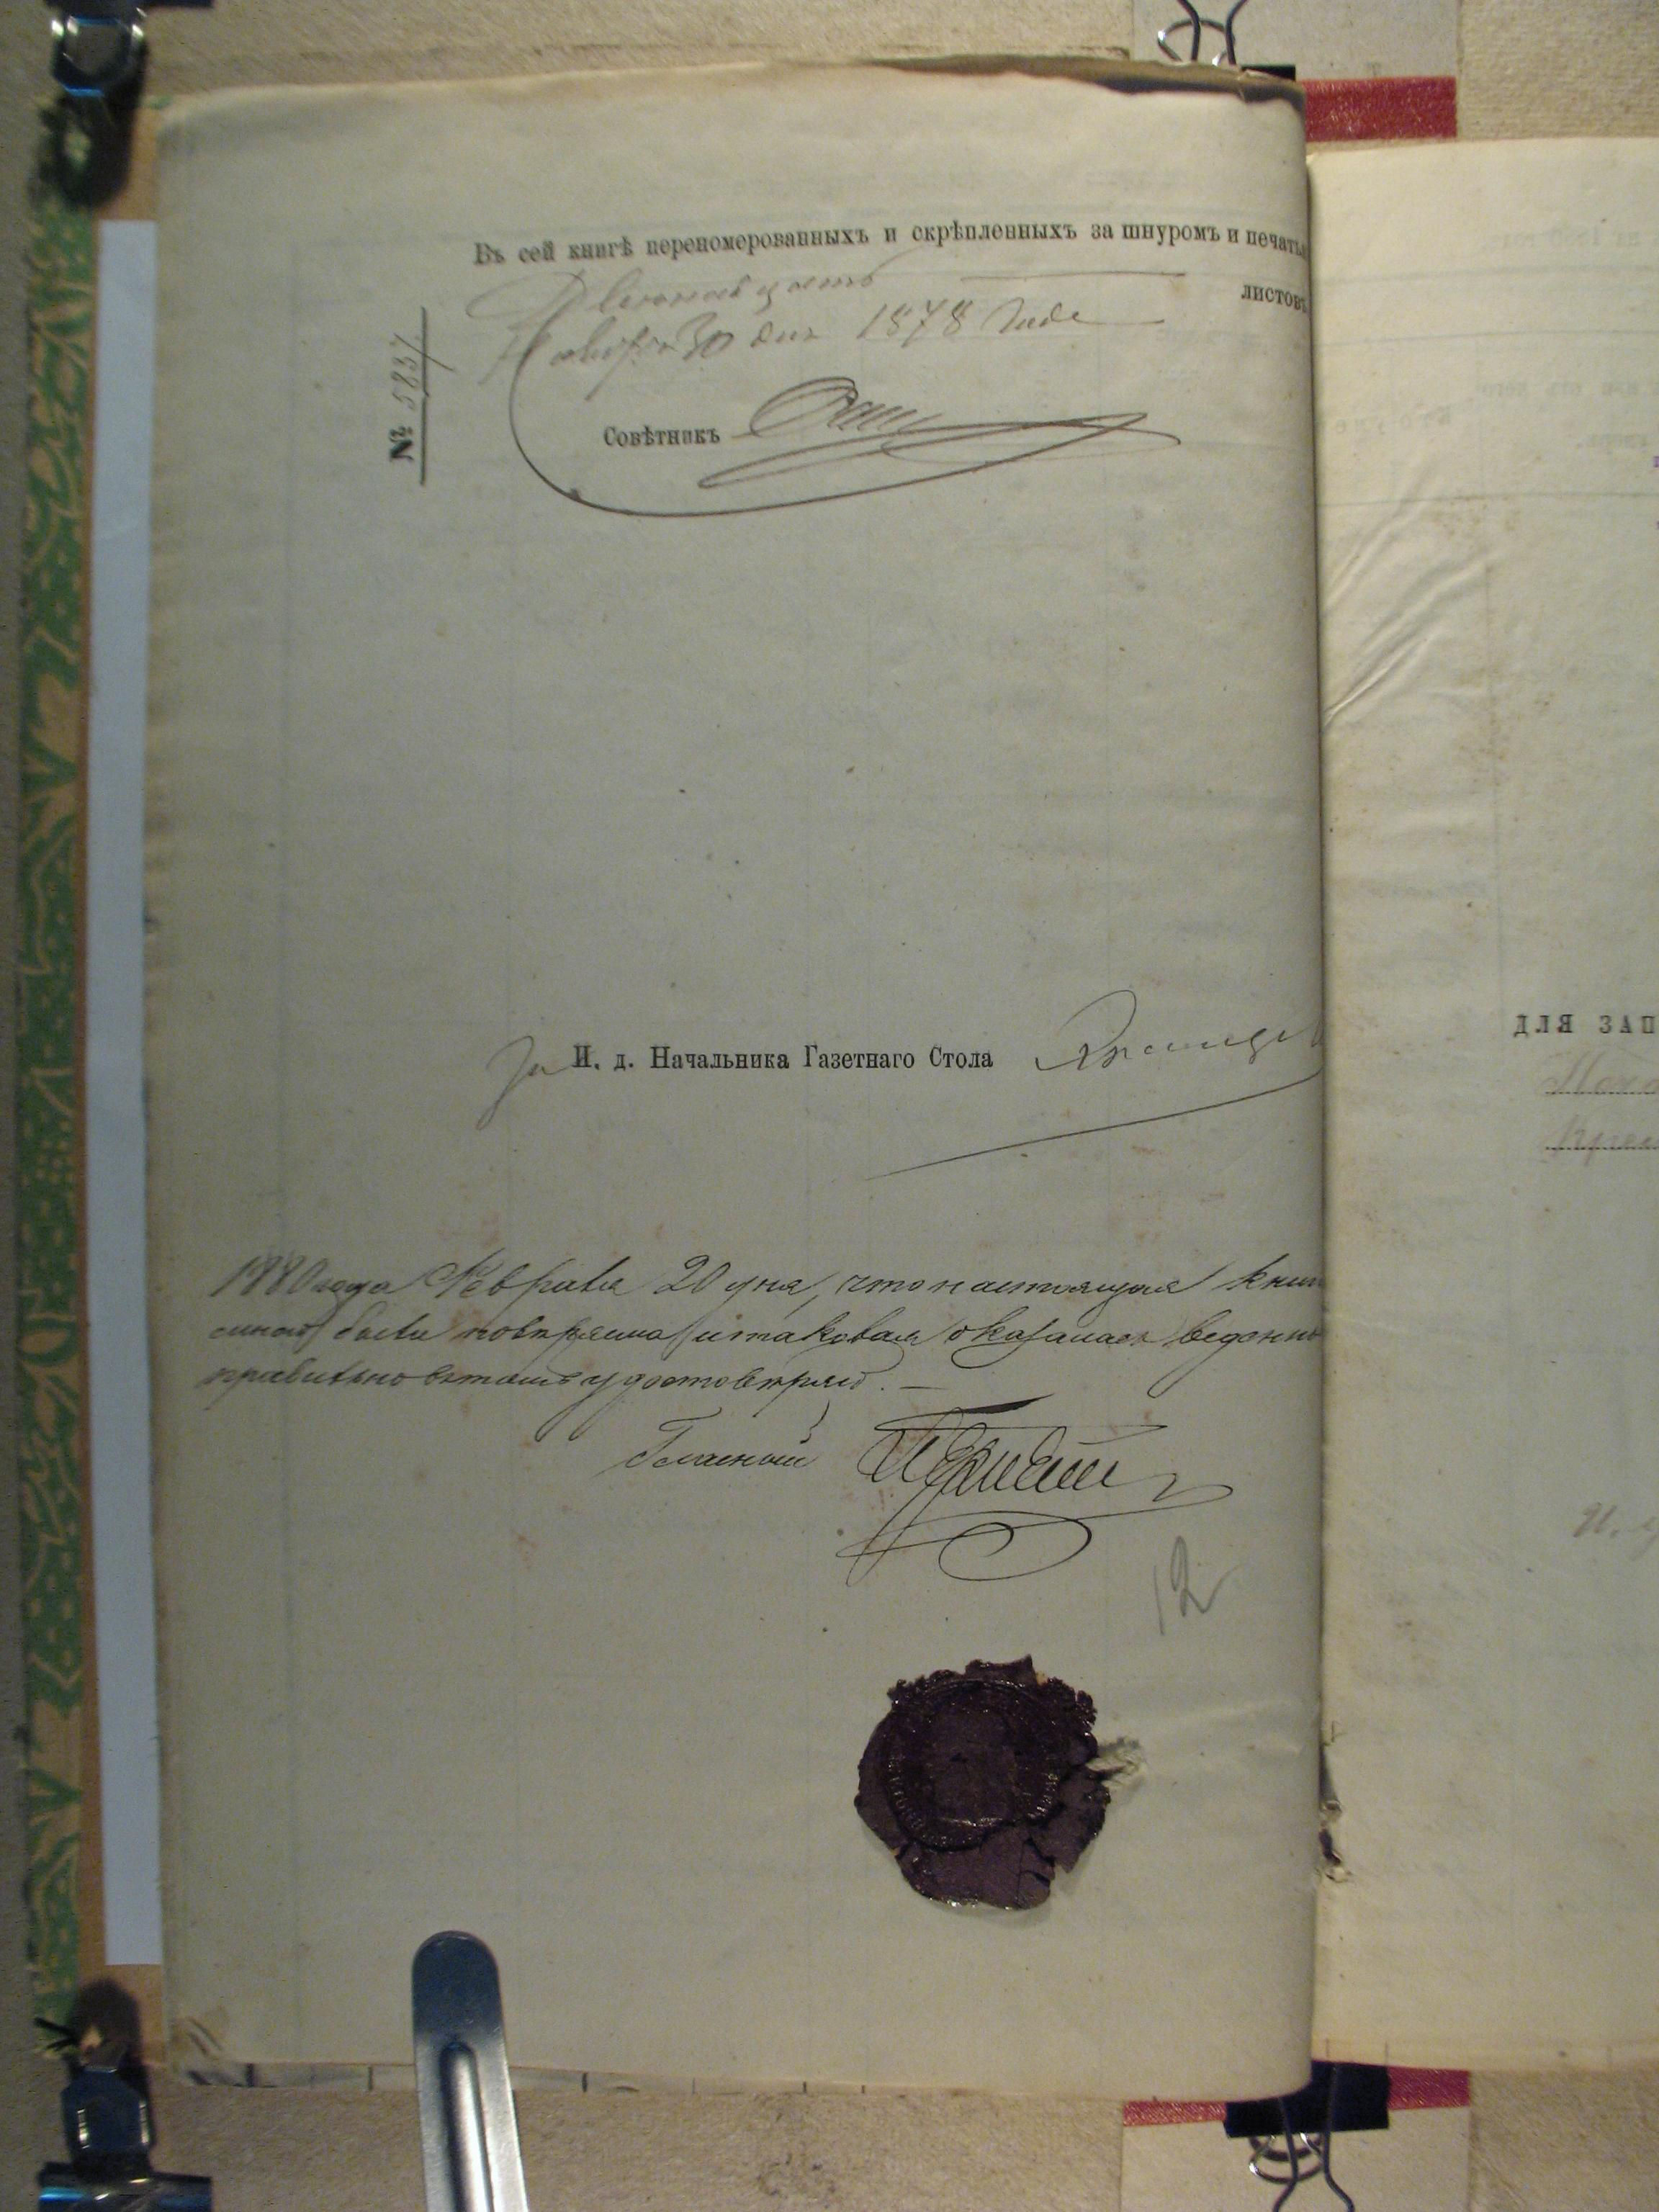 Въ сей книгѣ переномерованныхъ и скрѣпленныхъ за шнуромъ и печатью
Двенадцать листовъ
Ноября 30 дня 1878 Года
№ 5837
Совѣтникъ
За И. д. Начальника Газетнаго Стола
1880 года Февраля 20 дня, что настоящая книга
мною была повѣряема и таковая оказалась веденно
правильно въ томъ удостовѣряю. —
Гласный
12
ДЛЯ ЗАП